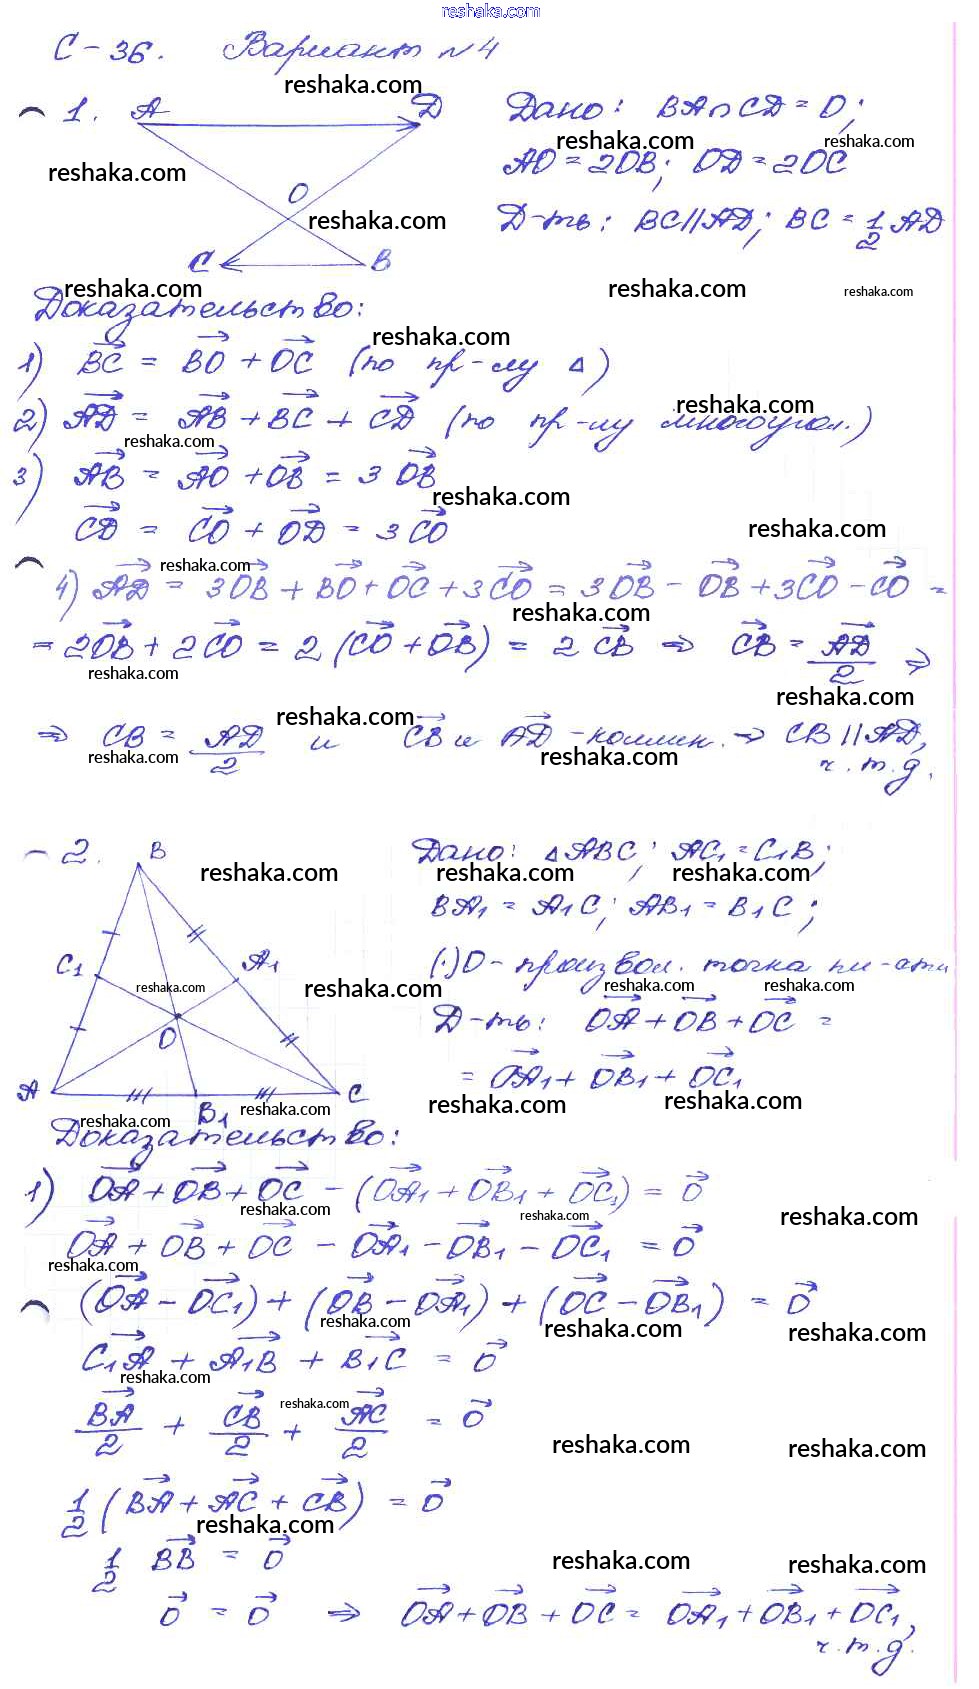 reshaka.com
С-36. Вариант №4
1. A D Дано: BA∩CD=O;
AO=2OB; OD=2OC
O
Д-ть: BC||AD; BC=1/2 AD
C B
Доказательство:
1) →BC = →BO + →OC (по пр-лу Δ)
2) →AD = →AB + →BC + →CD (по пр-лу многоугол.)
3) →AB = →AO + →OB = 3 →OB
→CD = →CO + →OD = 3 →CO
4) →AD = 3→OB + →BO + →OC + 3→CO = 3→OB - →OB + 3→CO - →CO =
= 2→OB + 2→CO = 2 (→CO + →OB) = 2 →CB ⇒ →CB = →AD/2 ⇒
⇒ CB = AD/2 и →CB и →AD - коллин. ⇒ CB || AD,
ч.т.д.
2. B Дано: ΔABC; AC₁=C₁B;
BA₁=A₁C; AB₁=B₁C;
C₁ A₁ (·)O - произвол. точка пл-сти
O Д-ть: →OA + →OB + →OC =
= →OA₁ + →OB₁ + →OC₁
A B₁ C
Доказательство:
1) →OA + →OB + →OC - (→OA₁ + →OB₁ + →OC₁) = →O
→OA + →OB + →OC - →OA₁ - →OB₁ - →OC₁ = →O
(→OA - →OC₁) + (→OB - →OA₁) + (→OC - →OB₁) = →O
→C₁A + →A₁B + →B₁C = →O
→BA/2 + →CB/2 + →AC/2 = →O
1/2 (→BA + →AC + →CB) = →O
1/2 →BB = →O
→O = →O ⇒ →OA + →OB + →OC = →OA₁ + →OB₁ + →OC₁,
ч.т.д.